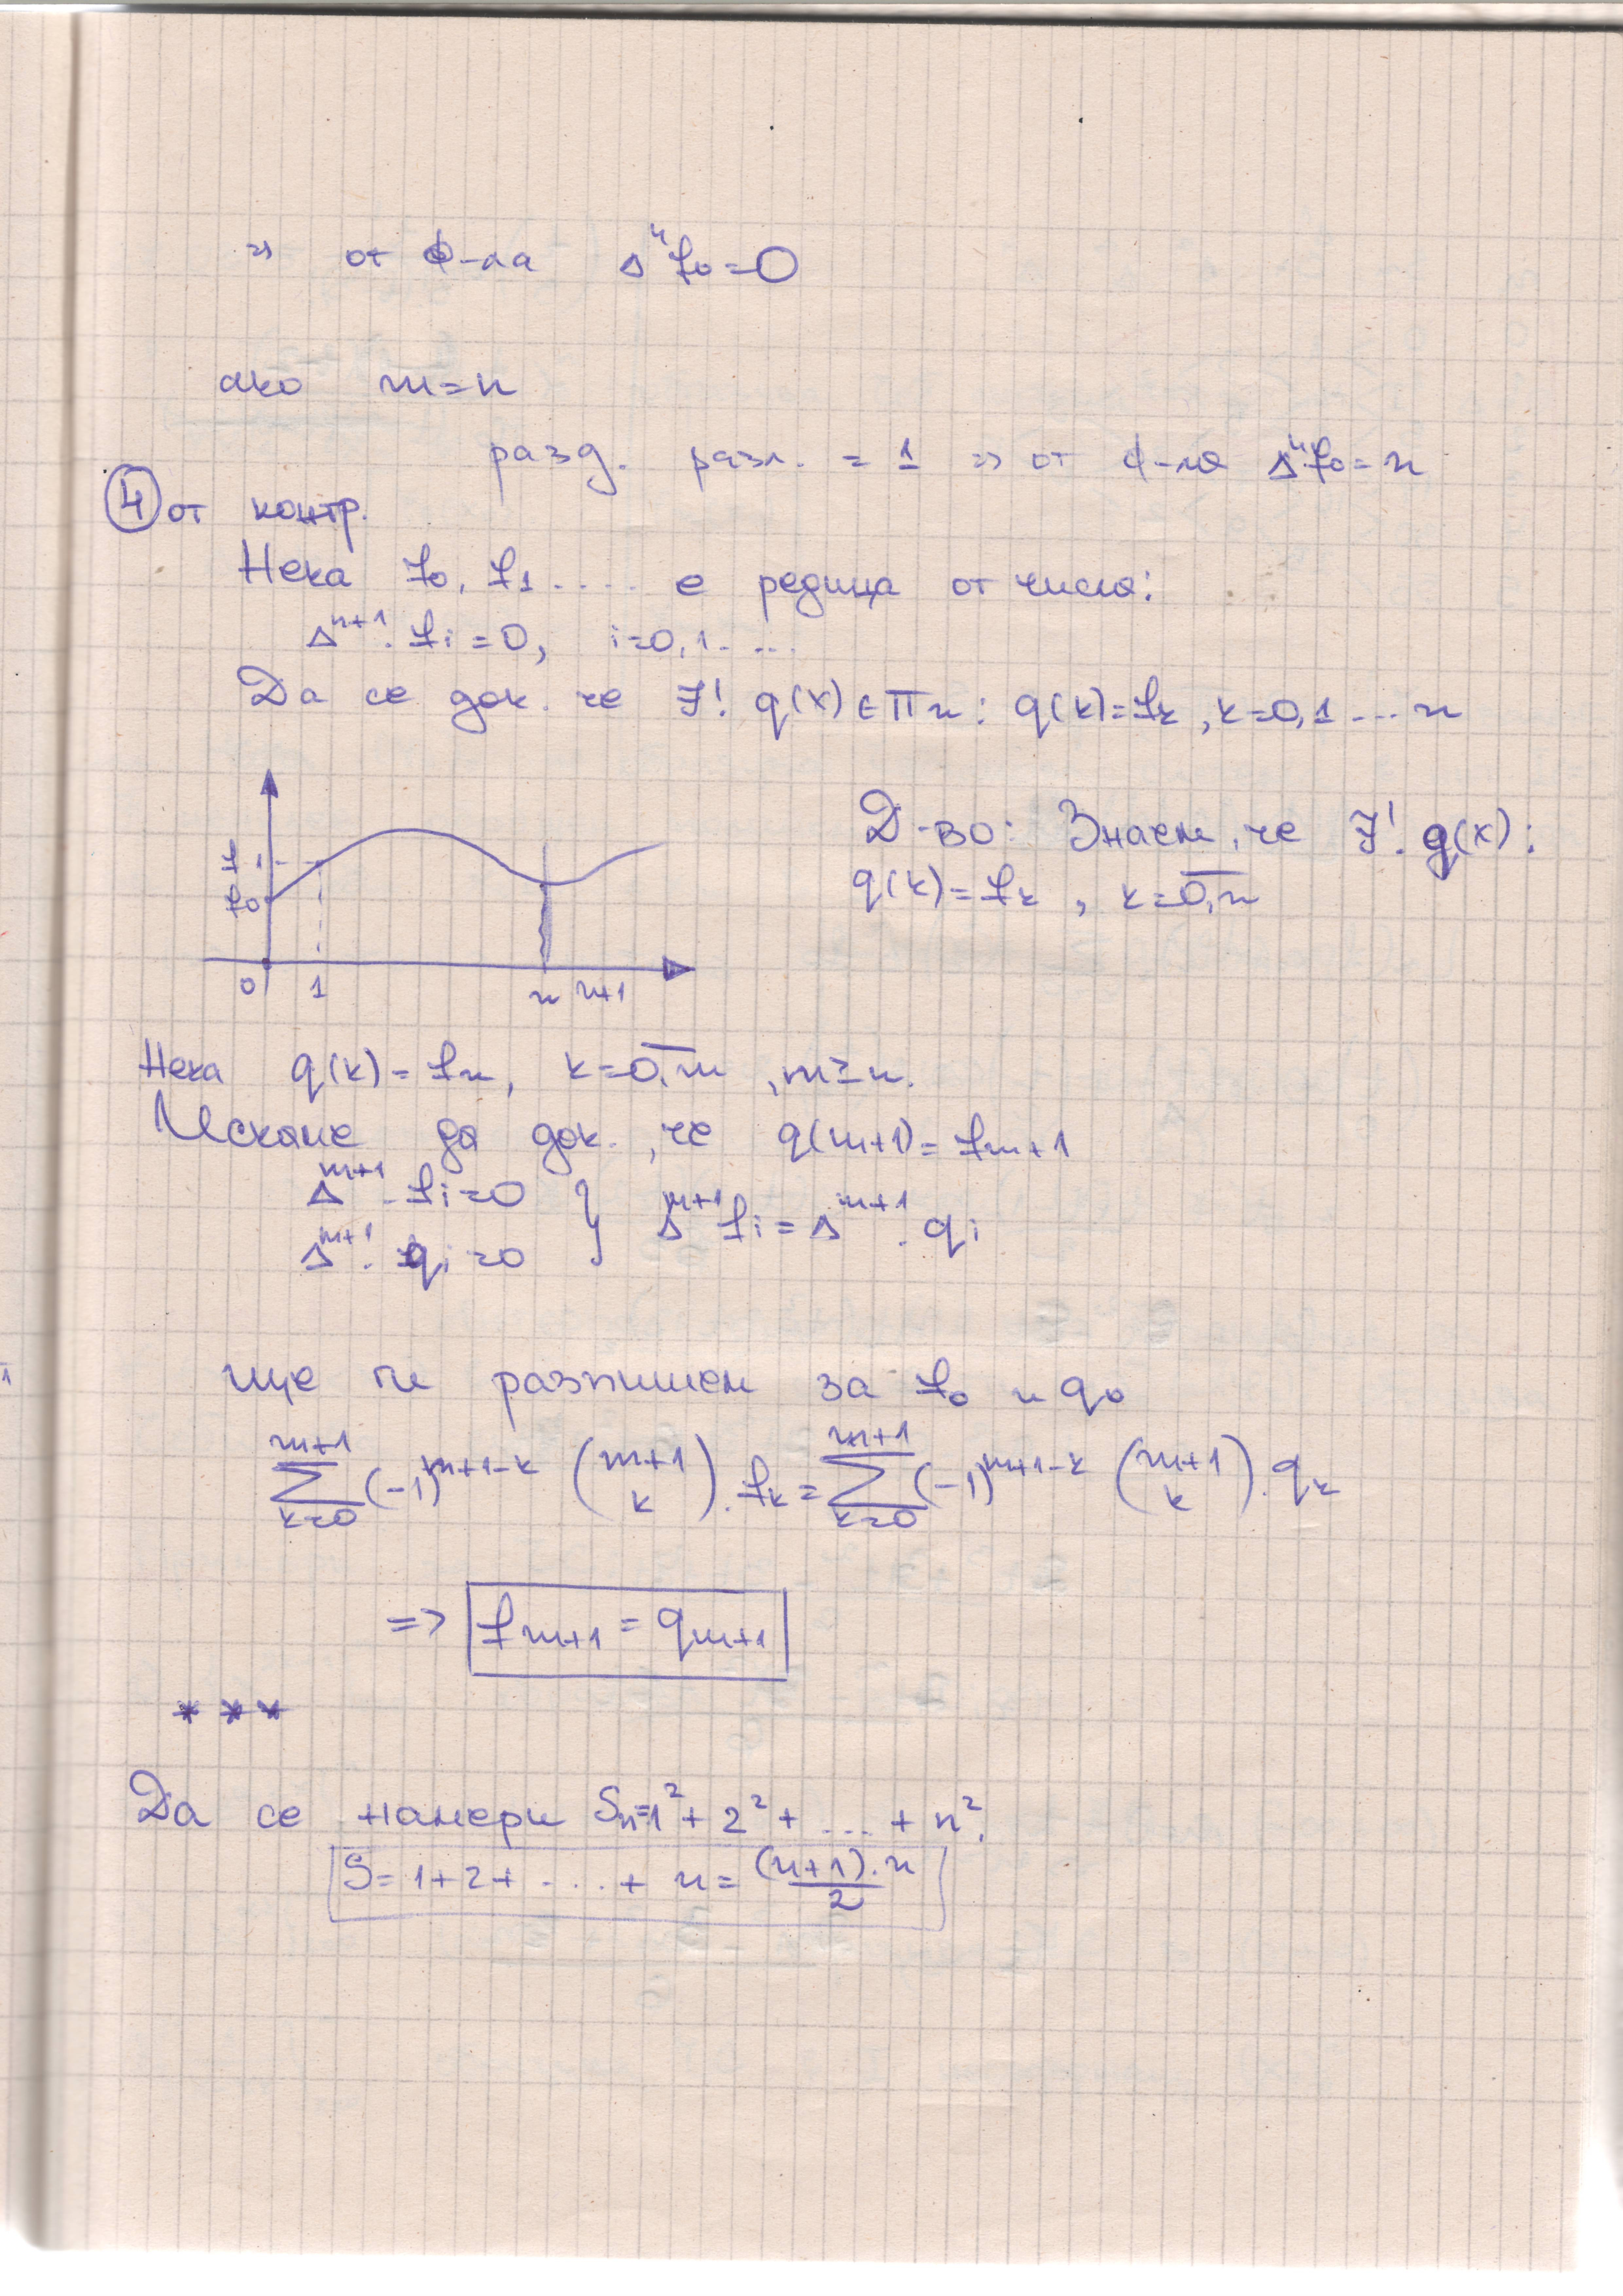 => от ф-ла Δⁿf₀=0
ако m=n
разд. разл. = 1 => от ф-ла Δⁿf₀=n
④ от контр.
Нека f₀, f₁ ..... е редица от числа:
Δⁿ⁺¹. fᵢ=0, i=0,1....
Да се док. че ∃! q(x)∈πn: q(k)=fₖ, k=0,1...n
f₁
f₀
0 1 n n+1
Д-во: Знаем, че ∃! q(x):
q(k)=fₖ, k=0,n
Нека q(k)=fₙ, k=0,m, m≥n.
Искаме да док., че q(m+1)=fm+1
Δᵐ⁺¹. fᵢ=0 } Δᵐ⁺¹fᵢ=Δᵐ⁺¹. qᵢ
Δᵐ⁺¹. qᵢ=0
ще ги разпишем за f₀ и q₀
∑_{k=0}^{m+1} (-1)^{m+1-k} (m+1 k). fₖ = ∑_{k=0}^{m+1} (-1)^{m+1-k} (m+1 k). qₖ
=> fm+1 = qm+1
***
Да се намери Sₙ=1²+2²+...+n².
S=1+2+....+n=(n+1).n/2